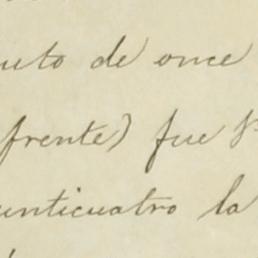 uto de once
frente) fue p
einticuatro la